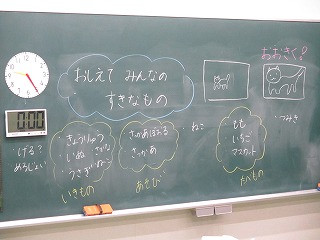 おしえて みんなの
すきなもの
おおきく!
・つみき
・ねこ
きょうりゅう
・いぬ
・うさぎ
さっかあぼおる
さっかあ
もも
いちご
マスカット
いきもの
あそび
たべもの